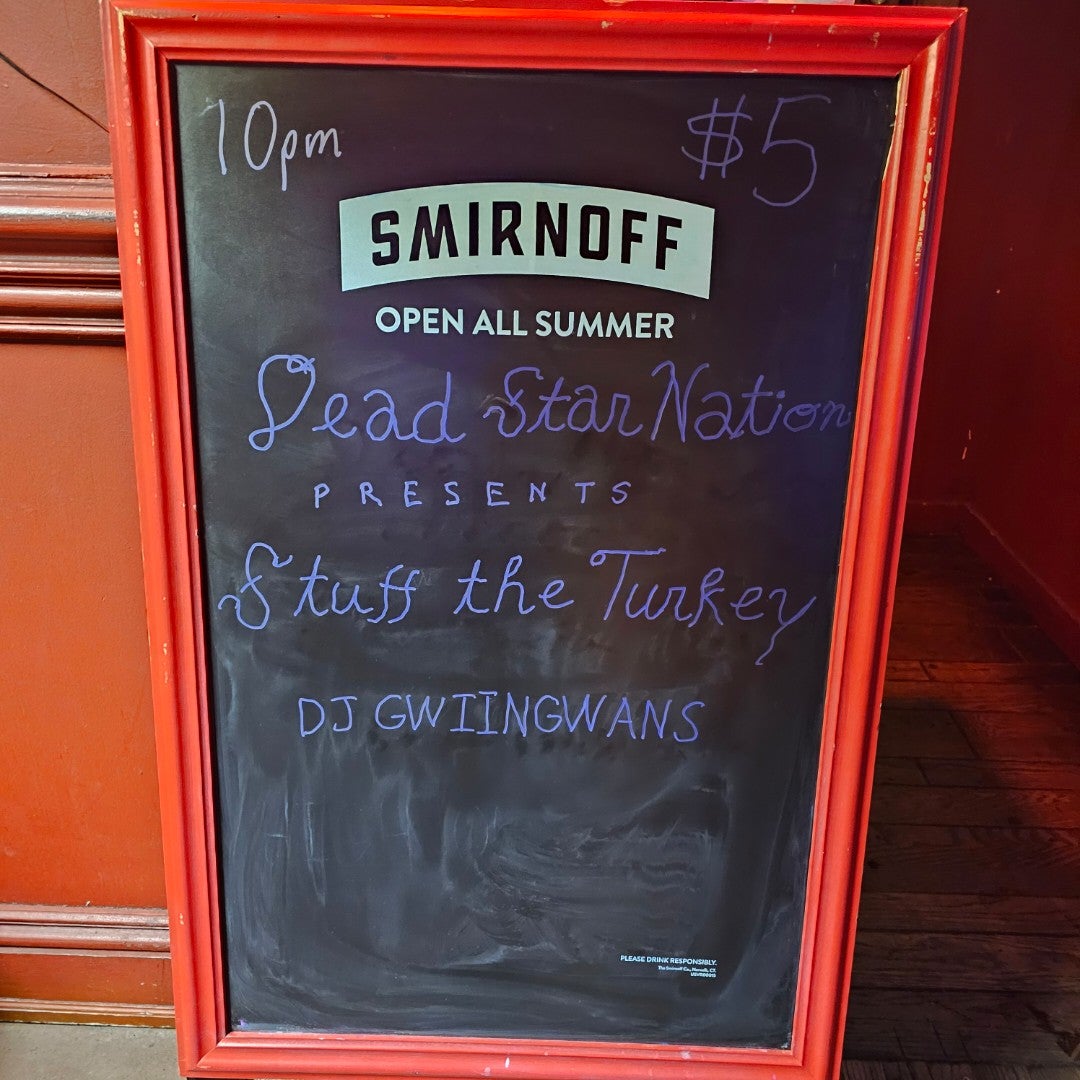 10pm $5
SMIRNOFF
OPEN ALL SUMMER
Dead Star Nation
PRESENTS
Stuff the Turkey
DJ GWIINGWANS
PLEASE DRINK RESPONSIBLY.
The Smirnoff Co., Norwalk, CT.